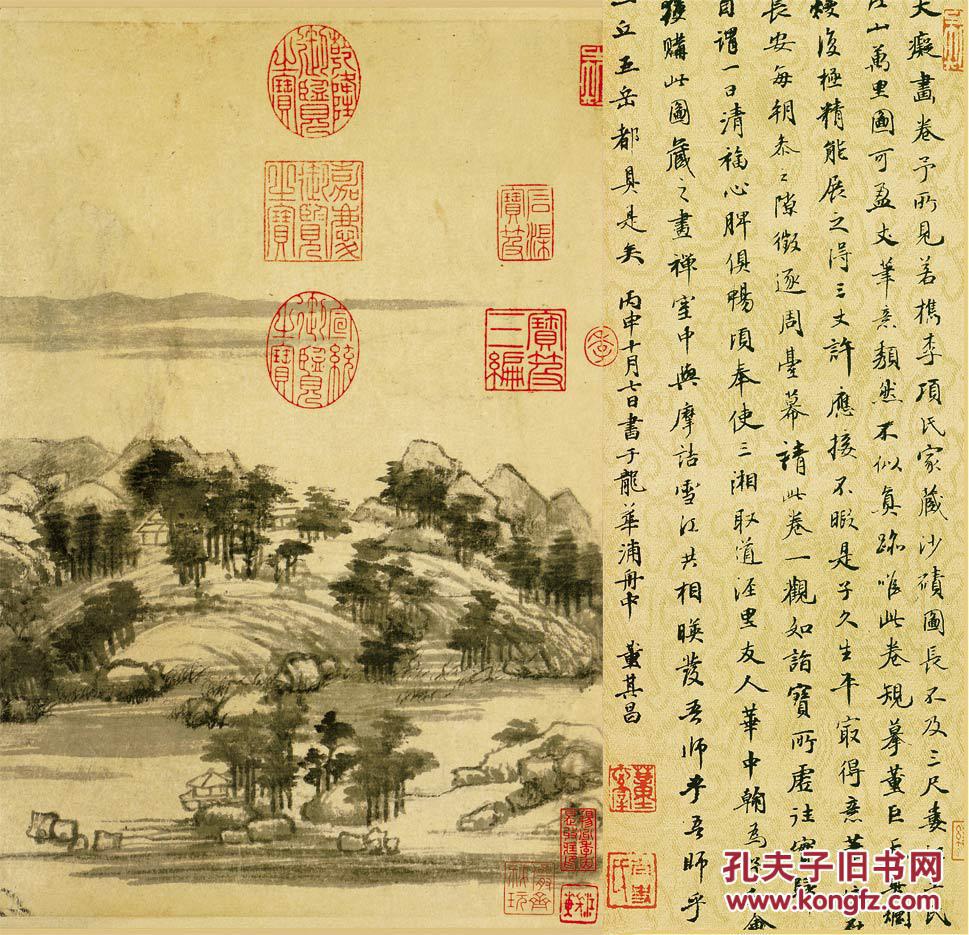 大癡畫卷予所見若檇李項氏家藏沙磧圖長不及三尺婁江王氏
江山萬里圖可盈丈筆意頹然不似眞跡唯此卷規摹董巨天真爛
熳復極精能展之得三丈許應接不暇是子久生平㝡得意筆
長安每朝參之隙徵逐周臺幕請此卷一觀如詣寶所虛往實歸
自謂一日清福心脾俱暢頃奉使三湘取道涇里友人華中翰為
獲購此圖藏之畫禪室中與摩詰雪江共相暎發吾師乎吾師乎
一丘五岳都具是矣 丙申十月七日書于龍華浦舟中 董其昌
乾隆御覽之寶
嘉慶御覽之寶
宣統御覽之寶
石渠寶笈
寶笈三編
孔夫子旧书网
www.kongfz.com